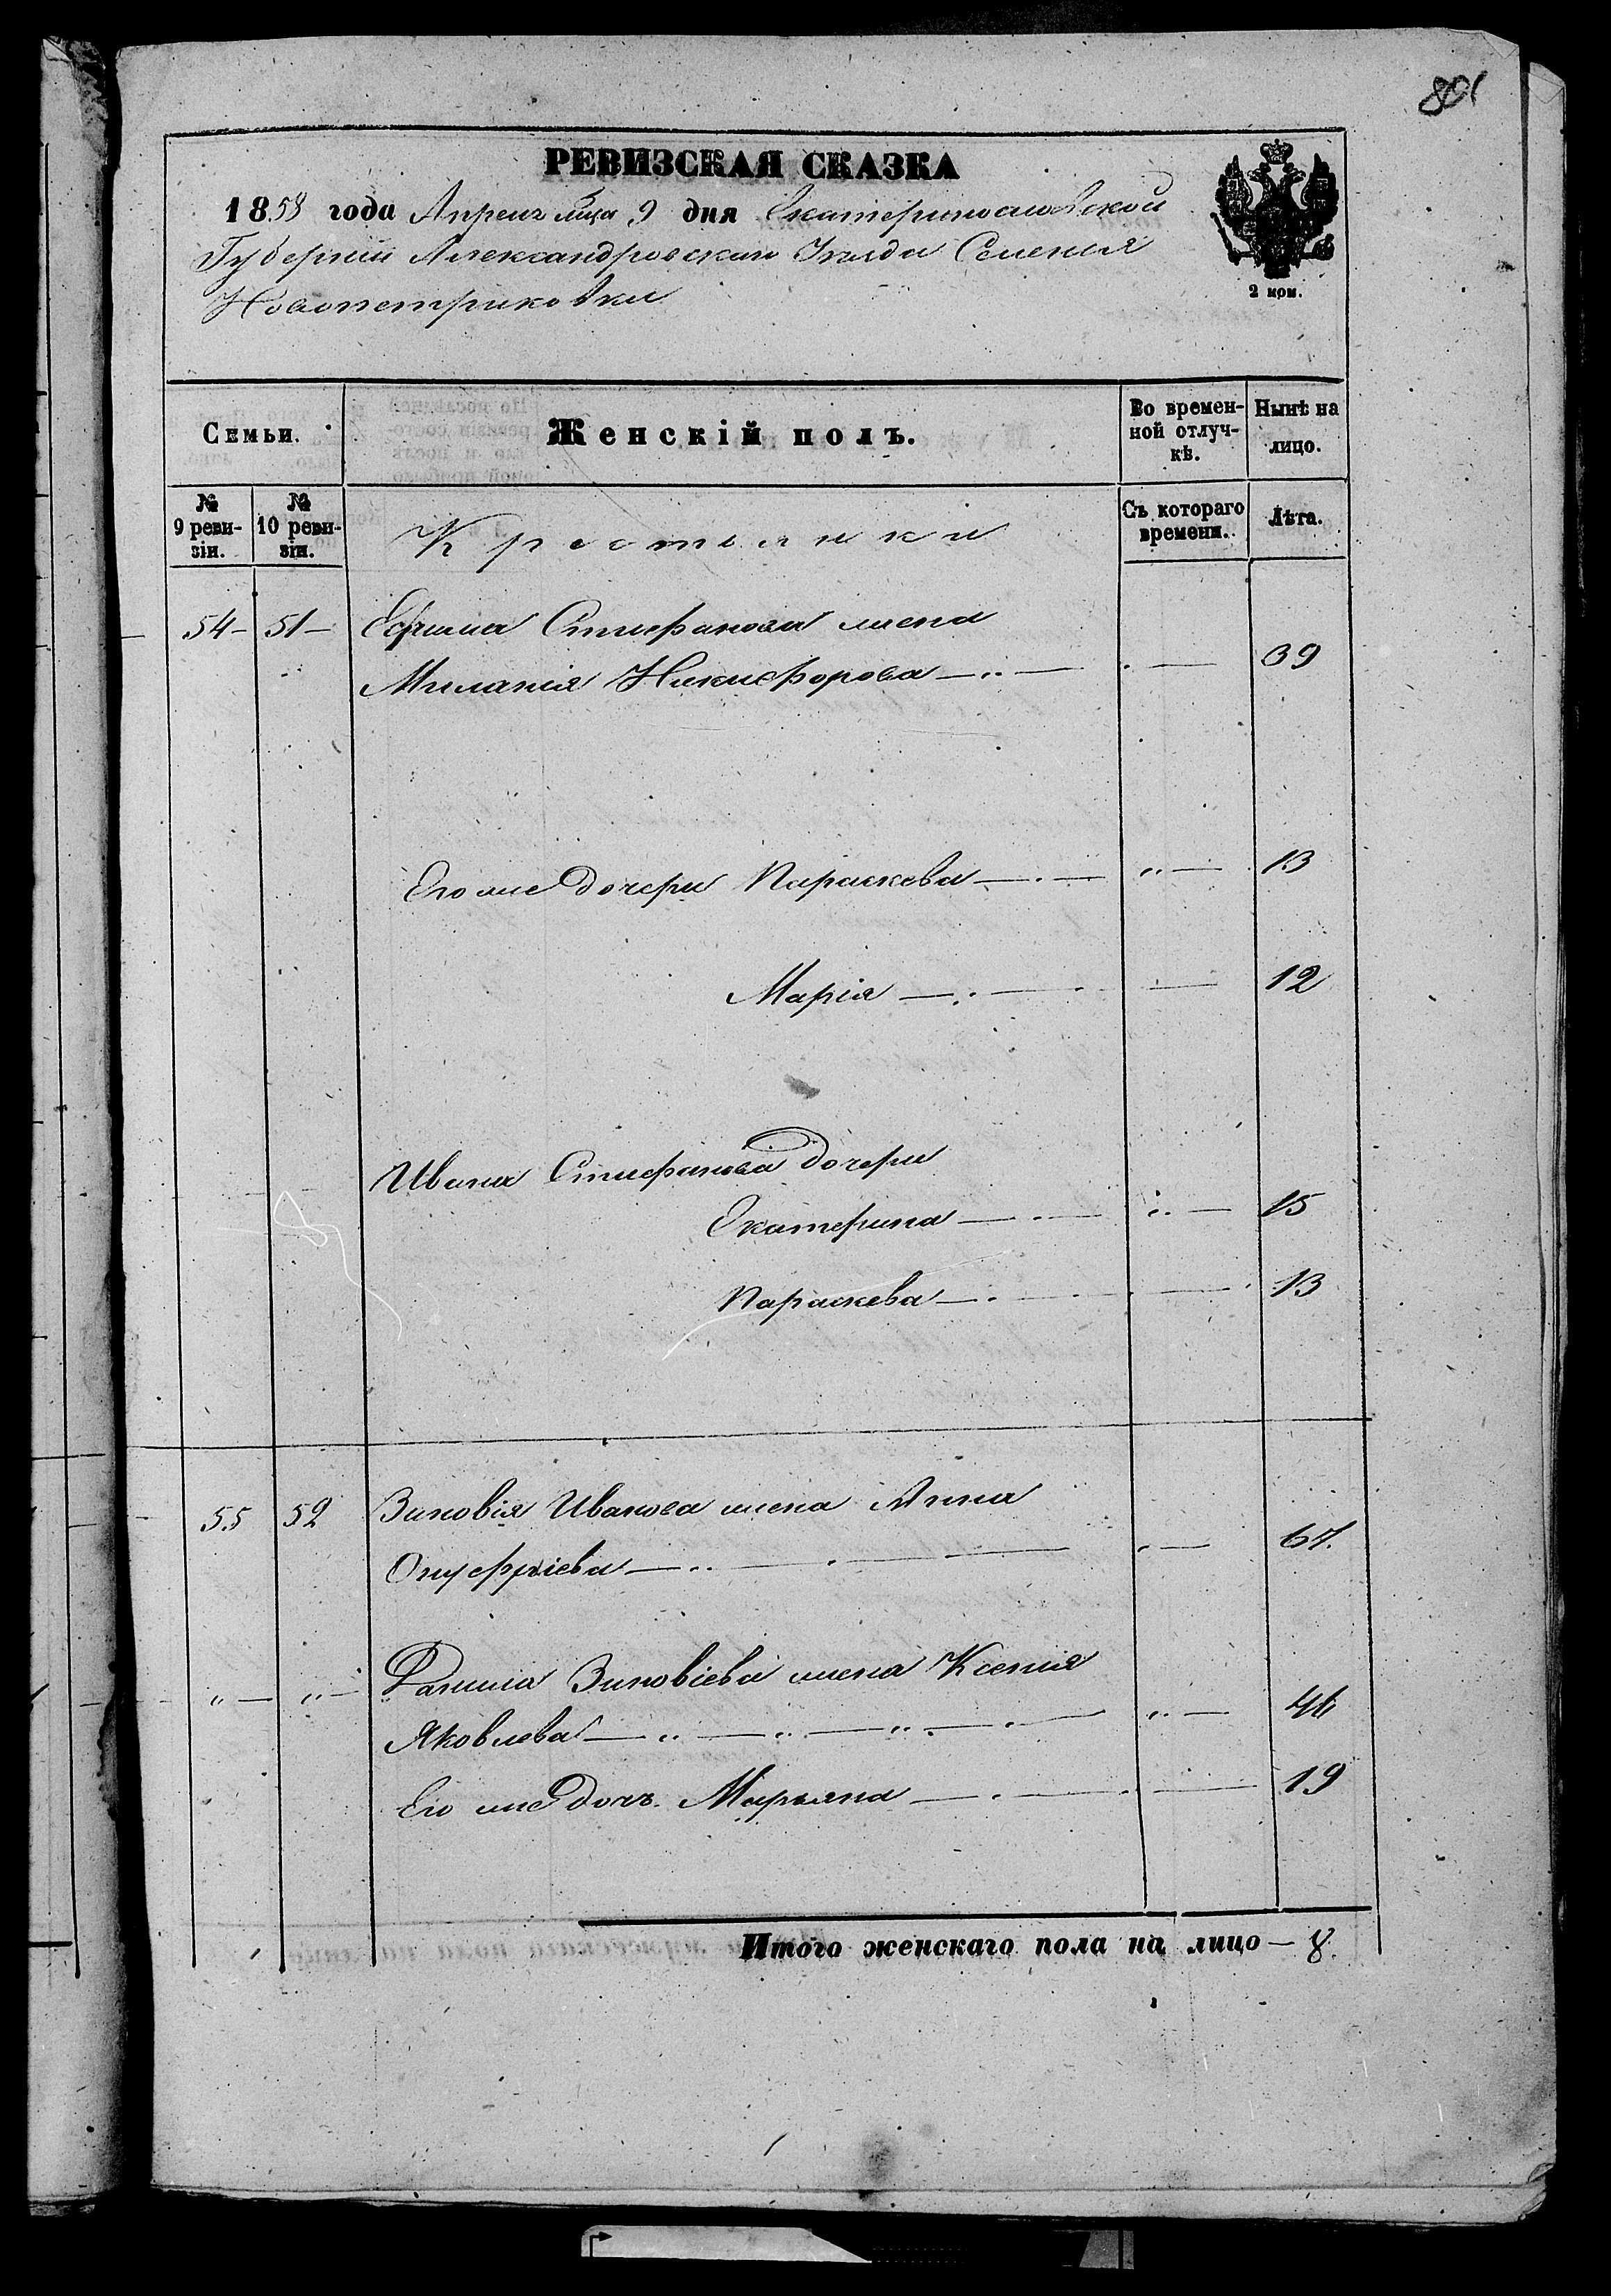 801
РЕВИЗСКАЯ СКАЗКА
1858 года Апреля м̃ца 9 дня Екатеринославской
Губерніи Александровскаго Уезда Селенія
Новопетриковки
2 коп.
Семьи.
Женскій полъ.
Во времен-
ной отлуч-
кѣ.
Нынѣ на
лицо.
№
9 реви-
зіи.
№
10 реви-
зіи.
Крестьянки
Съ котораго
времени.
Лѣта.
54 - 51 - Ефима Стифанова жена
Миланія Никифорова — „ — 39
Его же дочери Параскева — „ — 13
Марія — 12
Ивана Стифанова дочери
Екатерина — „ — 15
Параскева — 13
55 52 Зиновія Иванова жена Анна
Онуфріева — 67.
„ — „ — Данила Зиновіева жена Ксенія
Яковлева — „ — „ — „ — „ — 46
Его же дочь Марьяна — 19
Итого женскаго пола на лицо — 8.